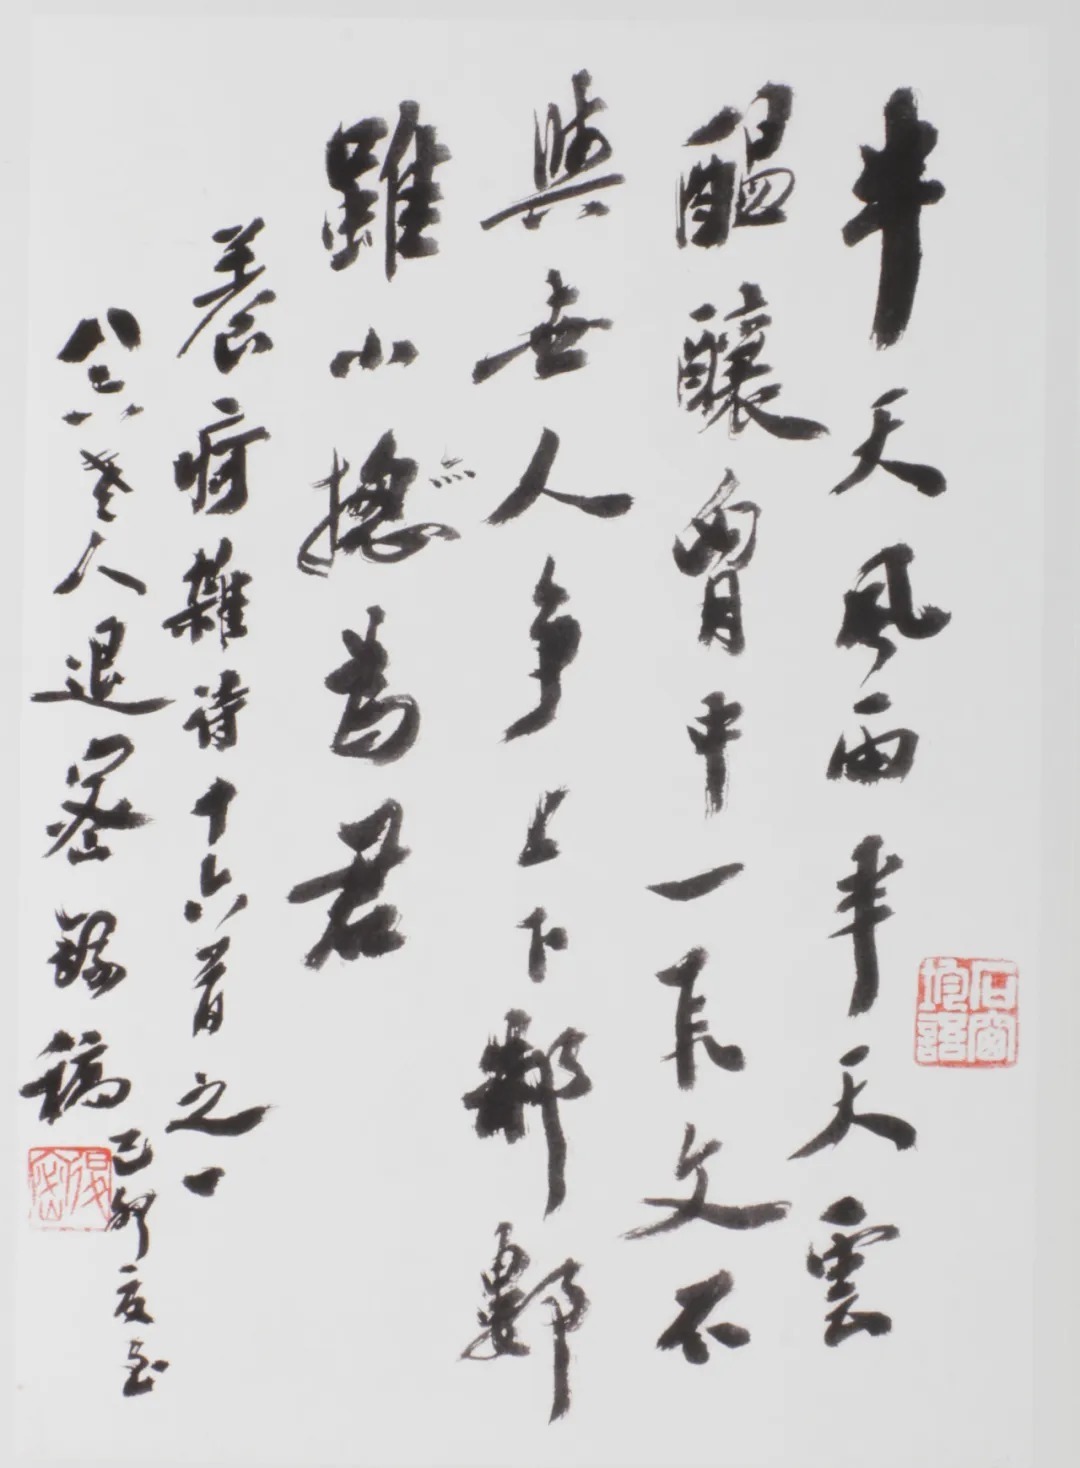 半天風雨半天雲
醖釀胷中一長文不
與世人爭上下
雖小總為君
養疴雜詩十六首之一
八六老人退密錄稿
己卯夏至
石窗
退密